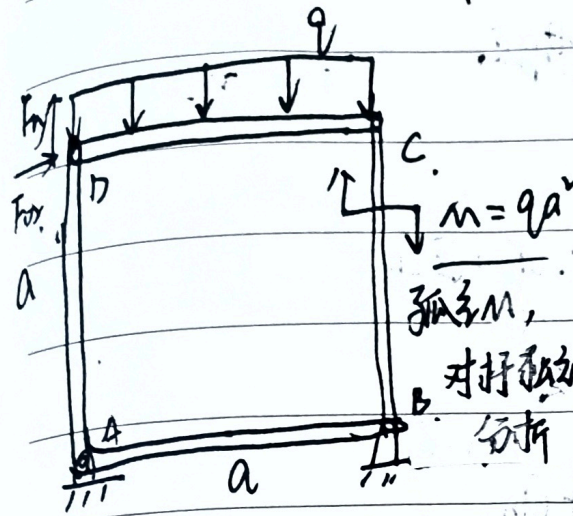 q
F_Dy
D
C
F_Dx
a
M = qa²
孤立M,
对杆孤立
分析
A
B
a